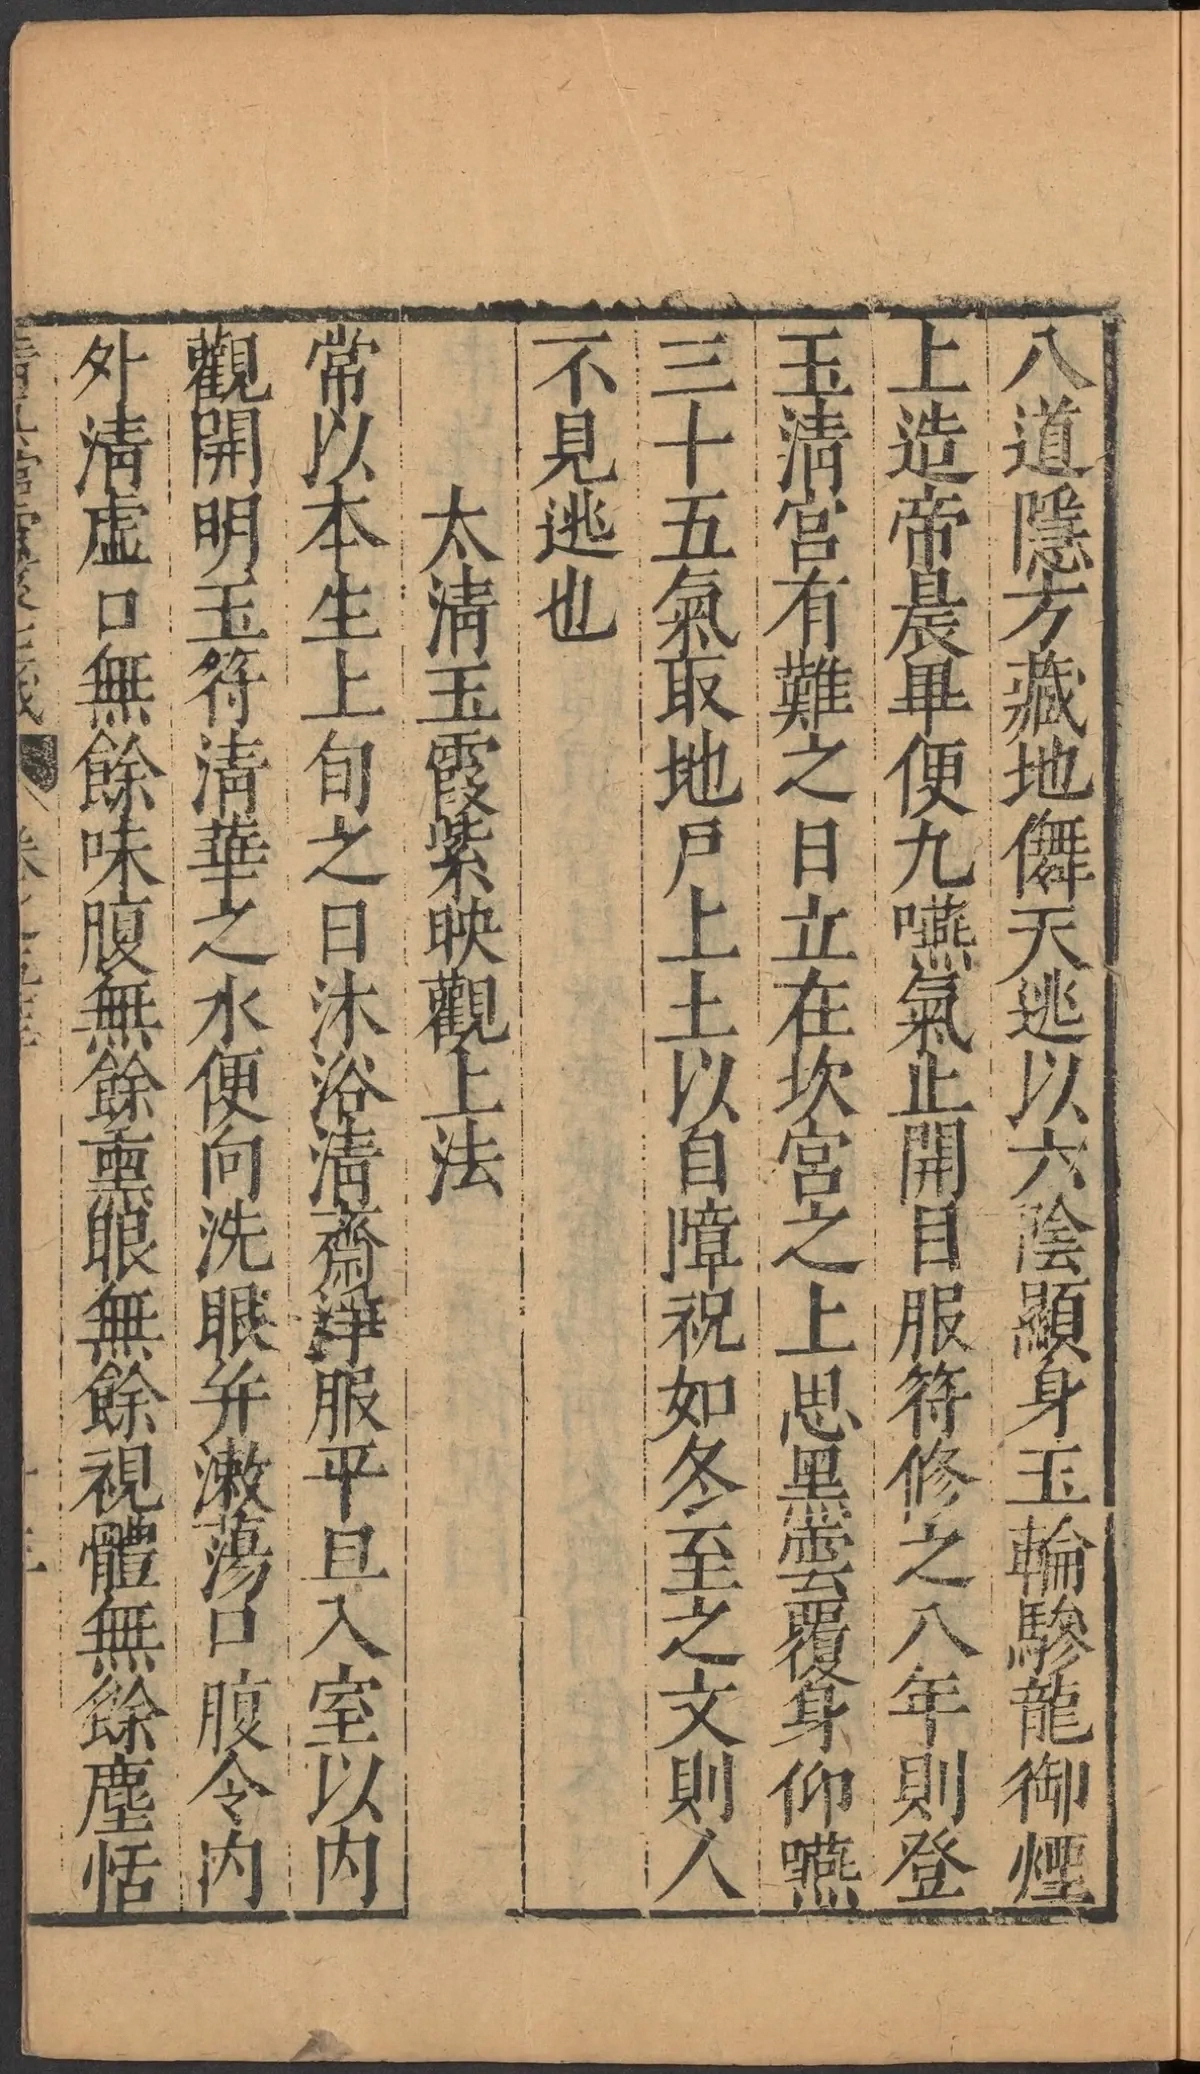 八道隱方藏地儛天逃以六陰顯身玉輪驂龍御煙
上造帝晨畢便九嚥氣止開目服符修之八年則登
玉淸宮有難之日立在坎宮之上思黑雲覆身仰嚥
三十五氣取地戶上土以自障祝如冬至之文則人
不見逃也
太淸玉霞紫映觀上法
常以本生上旬之日沐浴淸齋淨服平旦入室以内
觀開明玉符淸華之水便向洗眼并漱蕩口腹令内
外淸虛口無餘味腹無餘熏眼無餘視體無餘塵恬